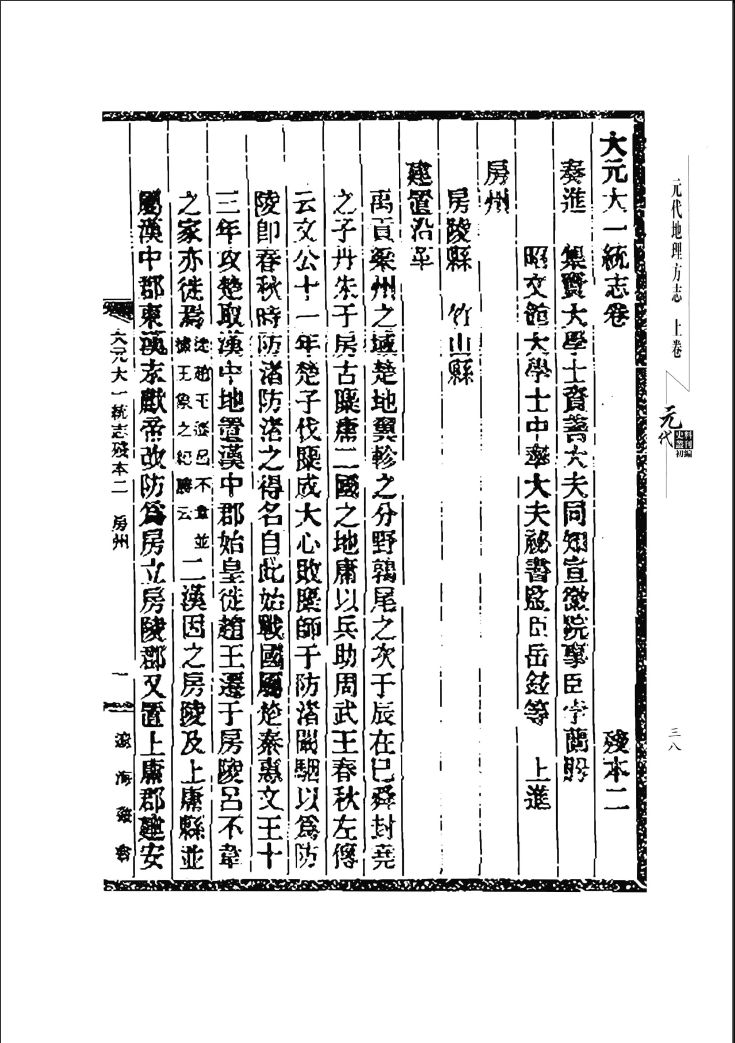 大元大一統志卷　殘本二
奏進　集賢大學士資善大夫同知宣徽院事臣孛蘭肹
昭文館大學士中奉大夫祕書監臣岳鉉等　上進
房州
房陵縣　竹山縣
建置沿革
禹貢梁州之域楚地翼軫之分野鶉尾之次于辰在巳舜封堯
之子丹朱于房古麇庸二國之地庸以兵助周武王春秋左傳
云文公十一年楚子伐麇成大心敗麇師于防渚闞駰以為防
陵卽春秋時防渚防渚之得名自此始戰國屬楚秦惠文王十
三年攻楚取漢中地置漢中郡始皇徙趙王遷于房陵呂不韋
之家亦徙焉
徙趙王遷呂不韋並
據王象之紀勝云
二漢因之房陵及上庸縣並
屬漢中郡東漢末獻帝改防為房立房陵郡又置上庸郡建安
大元大一統志殘本二　房州　一
遼海叢書
元代地理方志　上卷
元代
史料叢刊初編
三八